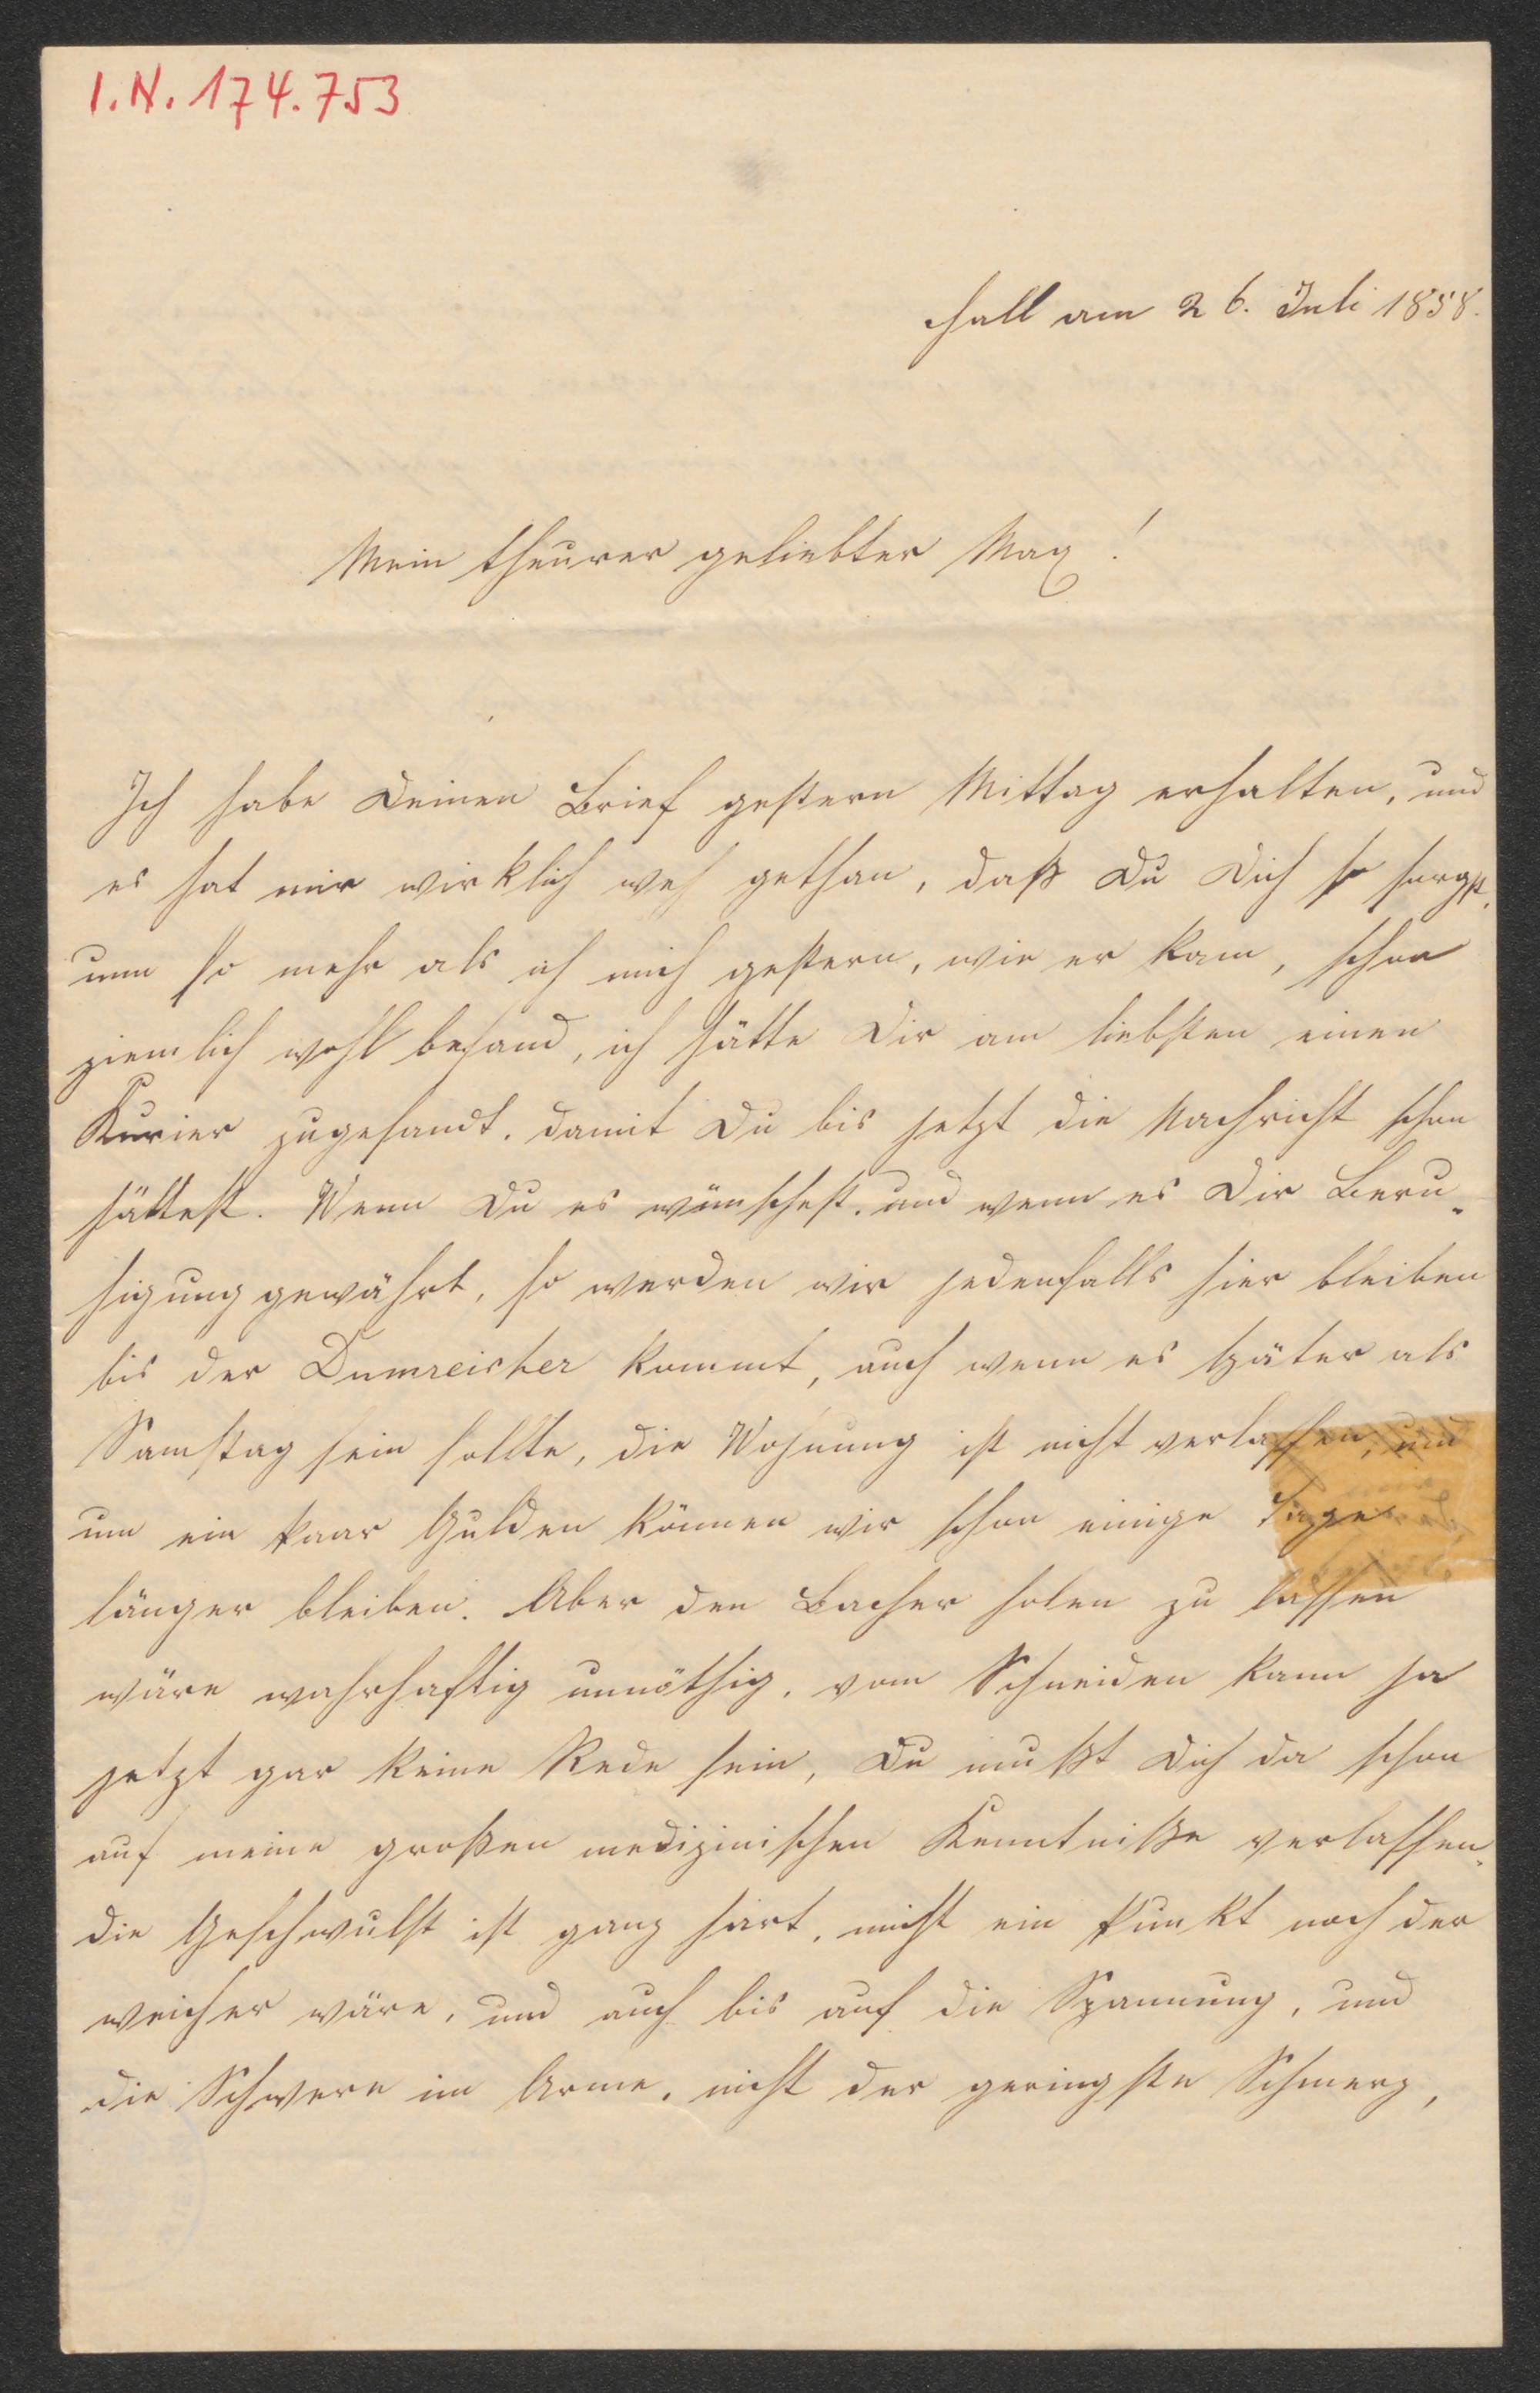 I.N. 174.753
Hall am 26. Juli 1858.
Mein theurer geliebter Max!
Ich habe Deinen Brief gestern Mittag erhalten, und
es hat mir wirklich weh gethan, daß Du Dich so sorgst,
um so mehr als ich mich gestern, wie er kam, schon
ziemlich wohl befand, ich hätte Dir am liebsten einen
Kurier zugesandt, damit Du bis jetzt die Nachricht schon
hättest. Wenn Du es wünschest, und wenn es Dir Beru„
higung gewährt, so werden wir jedenfalls hier bleiben
bis der Dumreicher kommt, auch wenn es später als
Samstag sein sollte, die Wohnung ist nicht verlassen, und
um ein paar Gulden können wir schon einige Tage
länger bleiben. Aber den Bacher holen zu lassen
wäre wahrhaftig unnöthig, vom Schneiden kann ja
jetzt gar keine Rede sein, Du mußt Dich da schon
auf meine großen medizinischen Kenntniße verlassen,
die Geschwulst ist ganz hart, nicht ein Punkt noch der
weicher wäre, und auch bis auf die Spannung, und
die Schwere im Arme, nicht der geringste Schmerz,